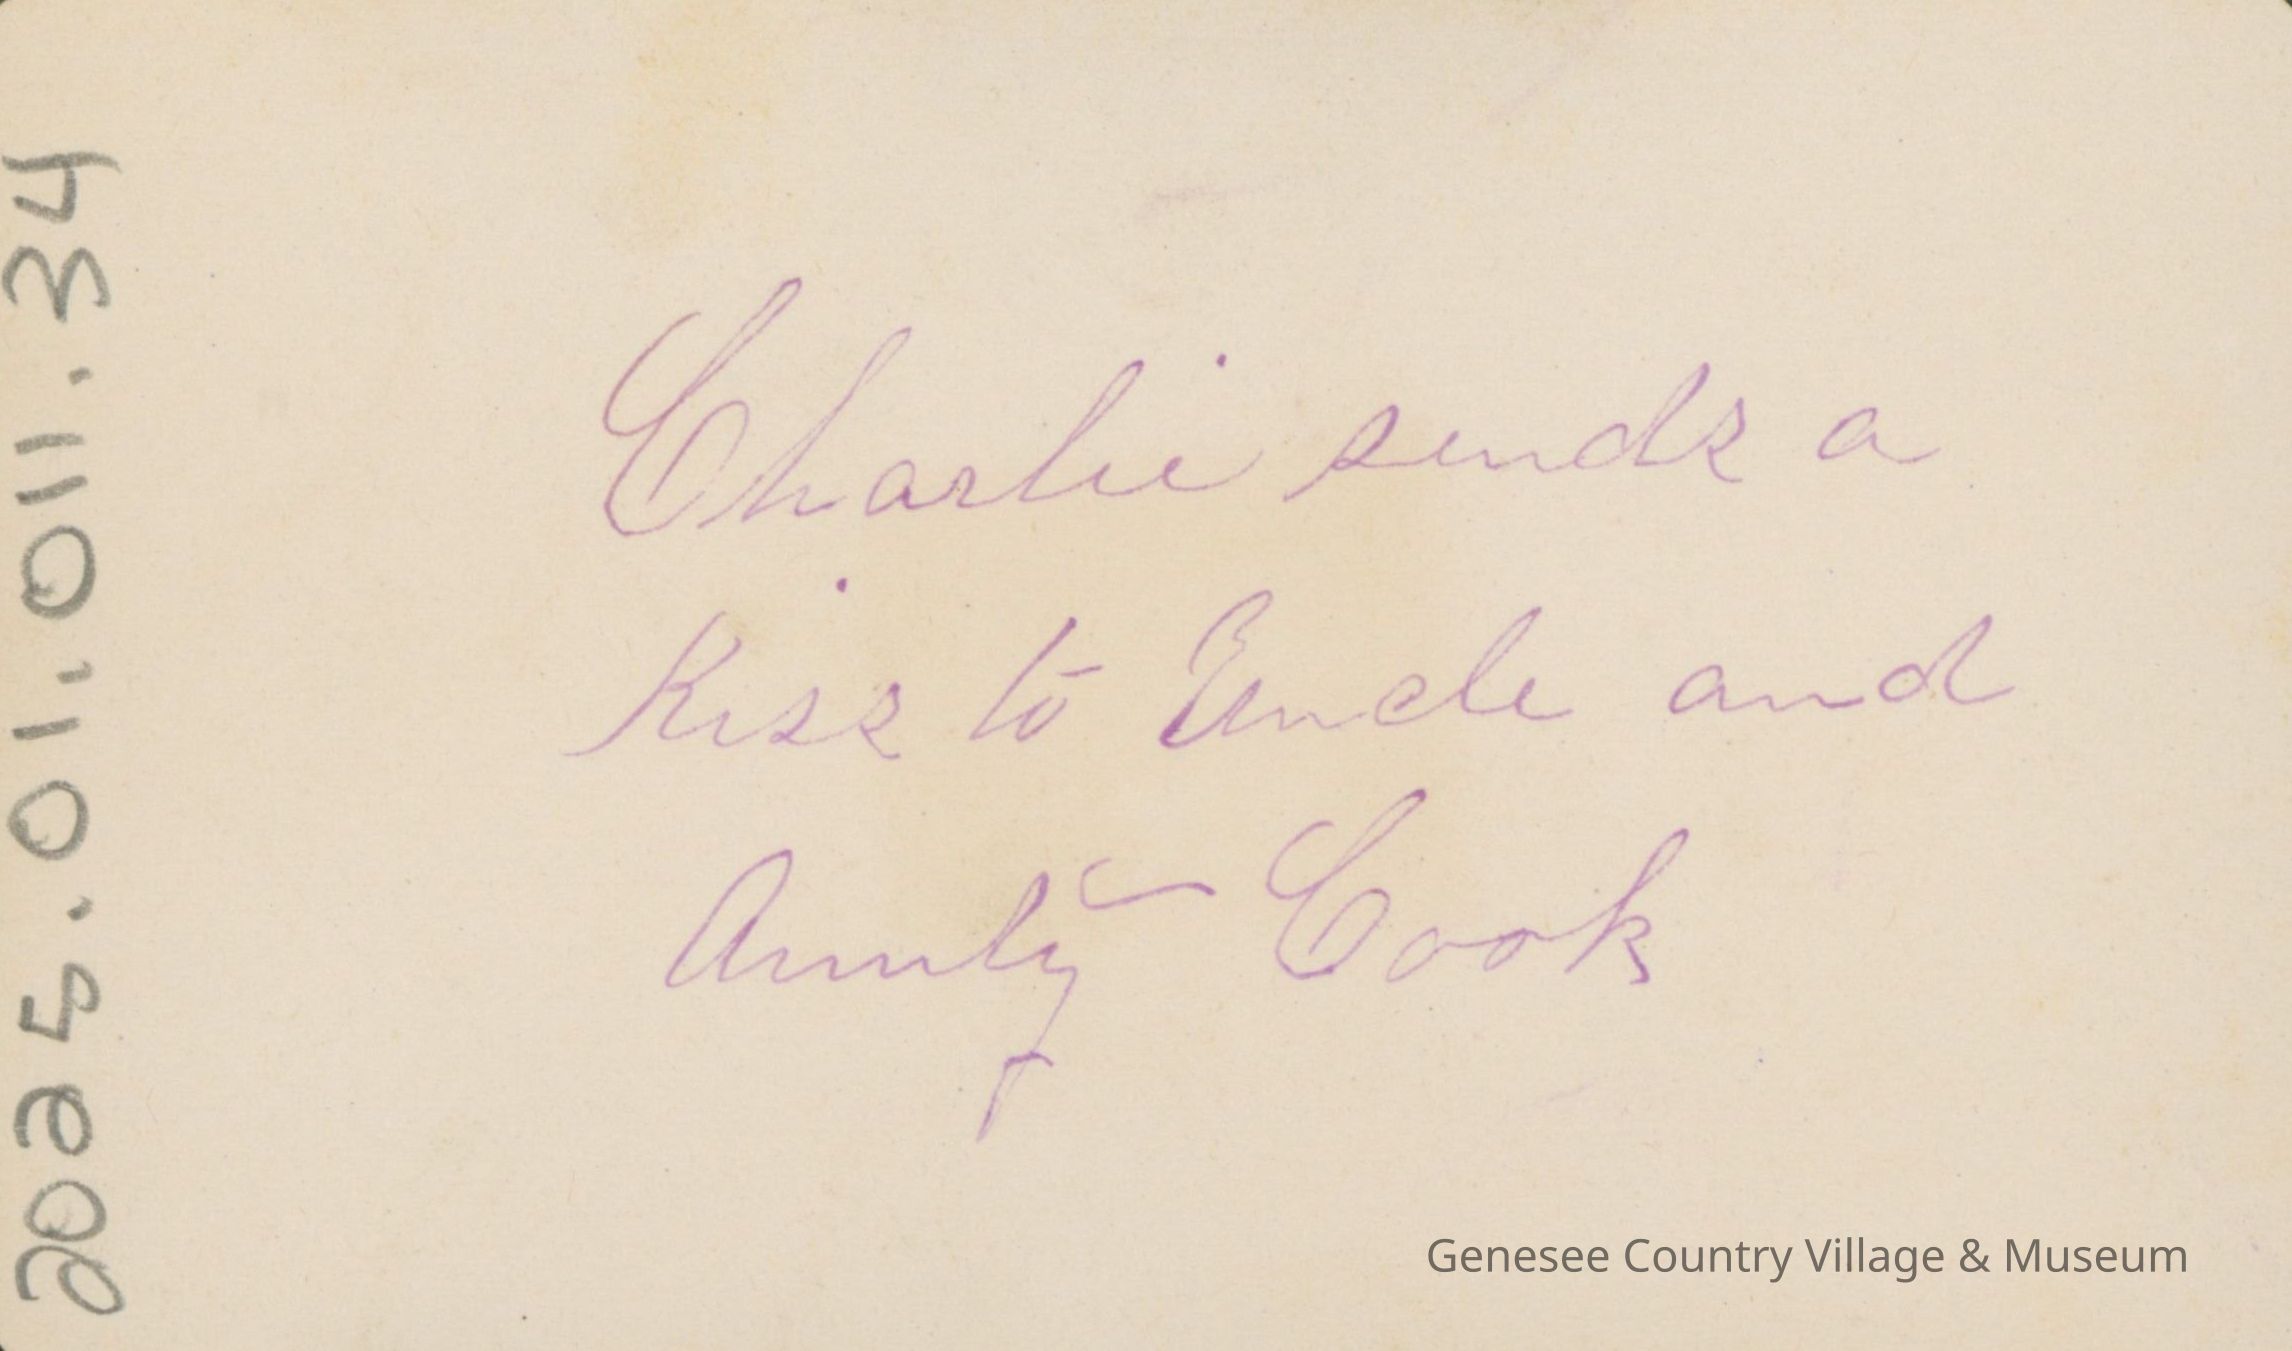 2025.01.011.34
Charlie sends a
Kiss to Uncle and
Aunty Cook
Genesee Country Village & Museum